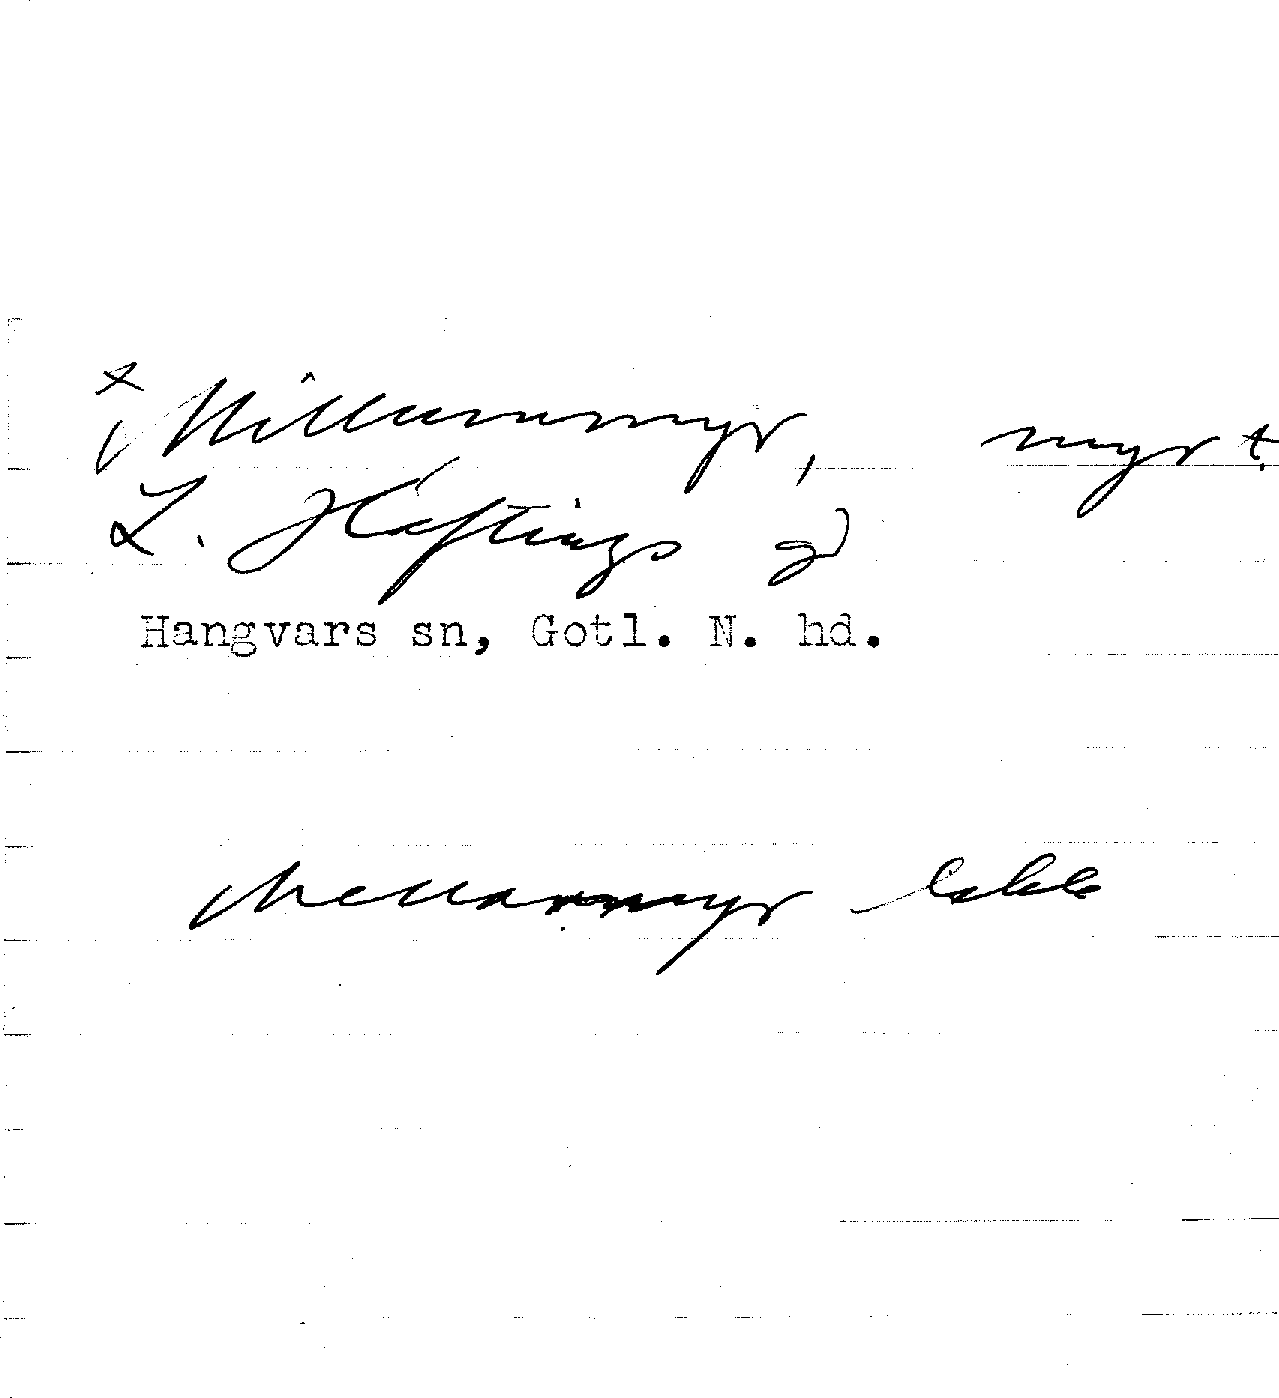 x Millummyr, myr t.
L. Hästings gd
Hangvars sn, Gotl. N. hd.
Mellammyr